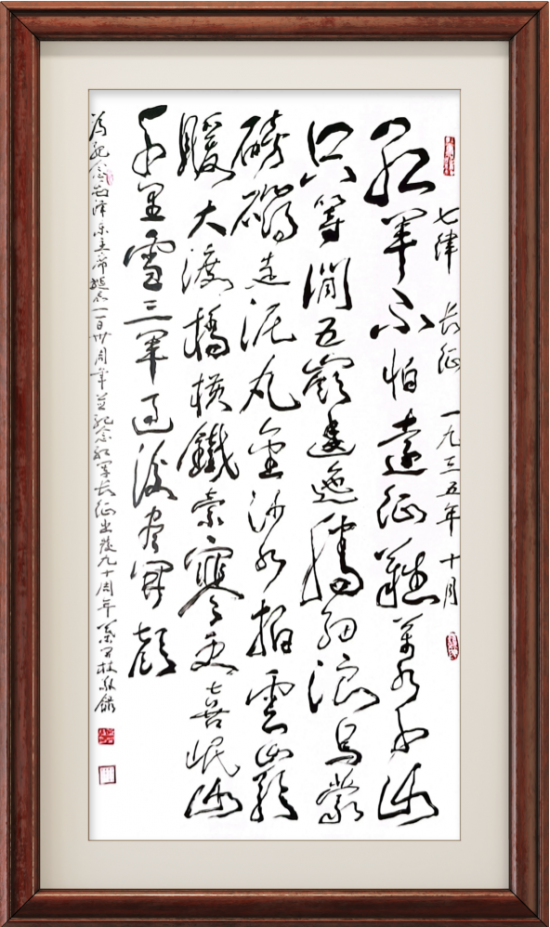 七律 长征 一九三五年十月
红軍不怕遠征難萬水千山
只等闲五嶺逶迤腾细浪乌蒙
磅礴走泥丸金沙水拍雲崖
暖大渡橋横鐵索寒更喜岷山
千里雪三軍过後尽開颜
为纪念毛泽东主席诞辰一百卅周年並纪念红军长征出發九十周年敬錄